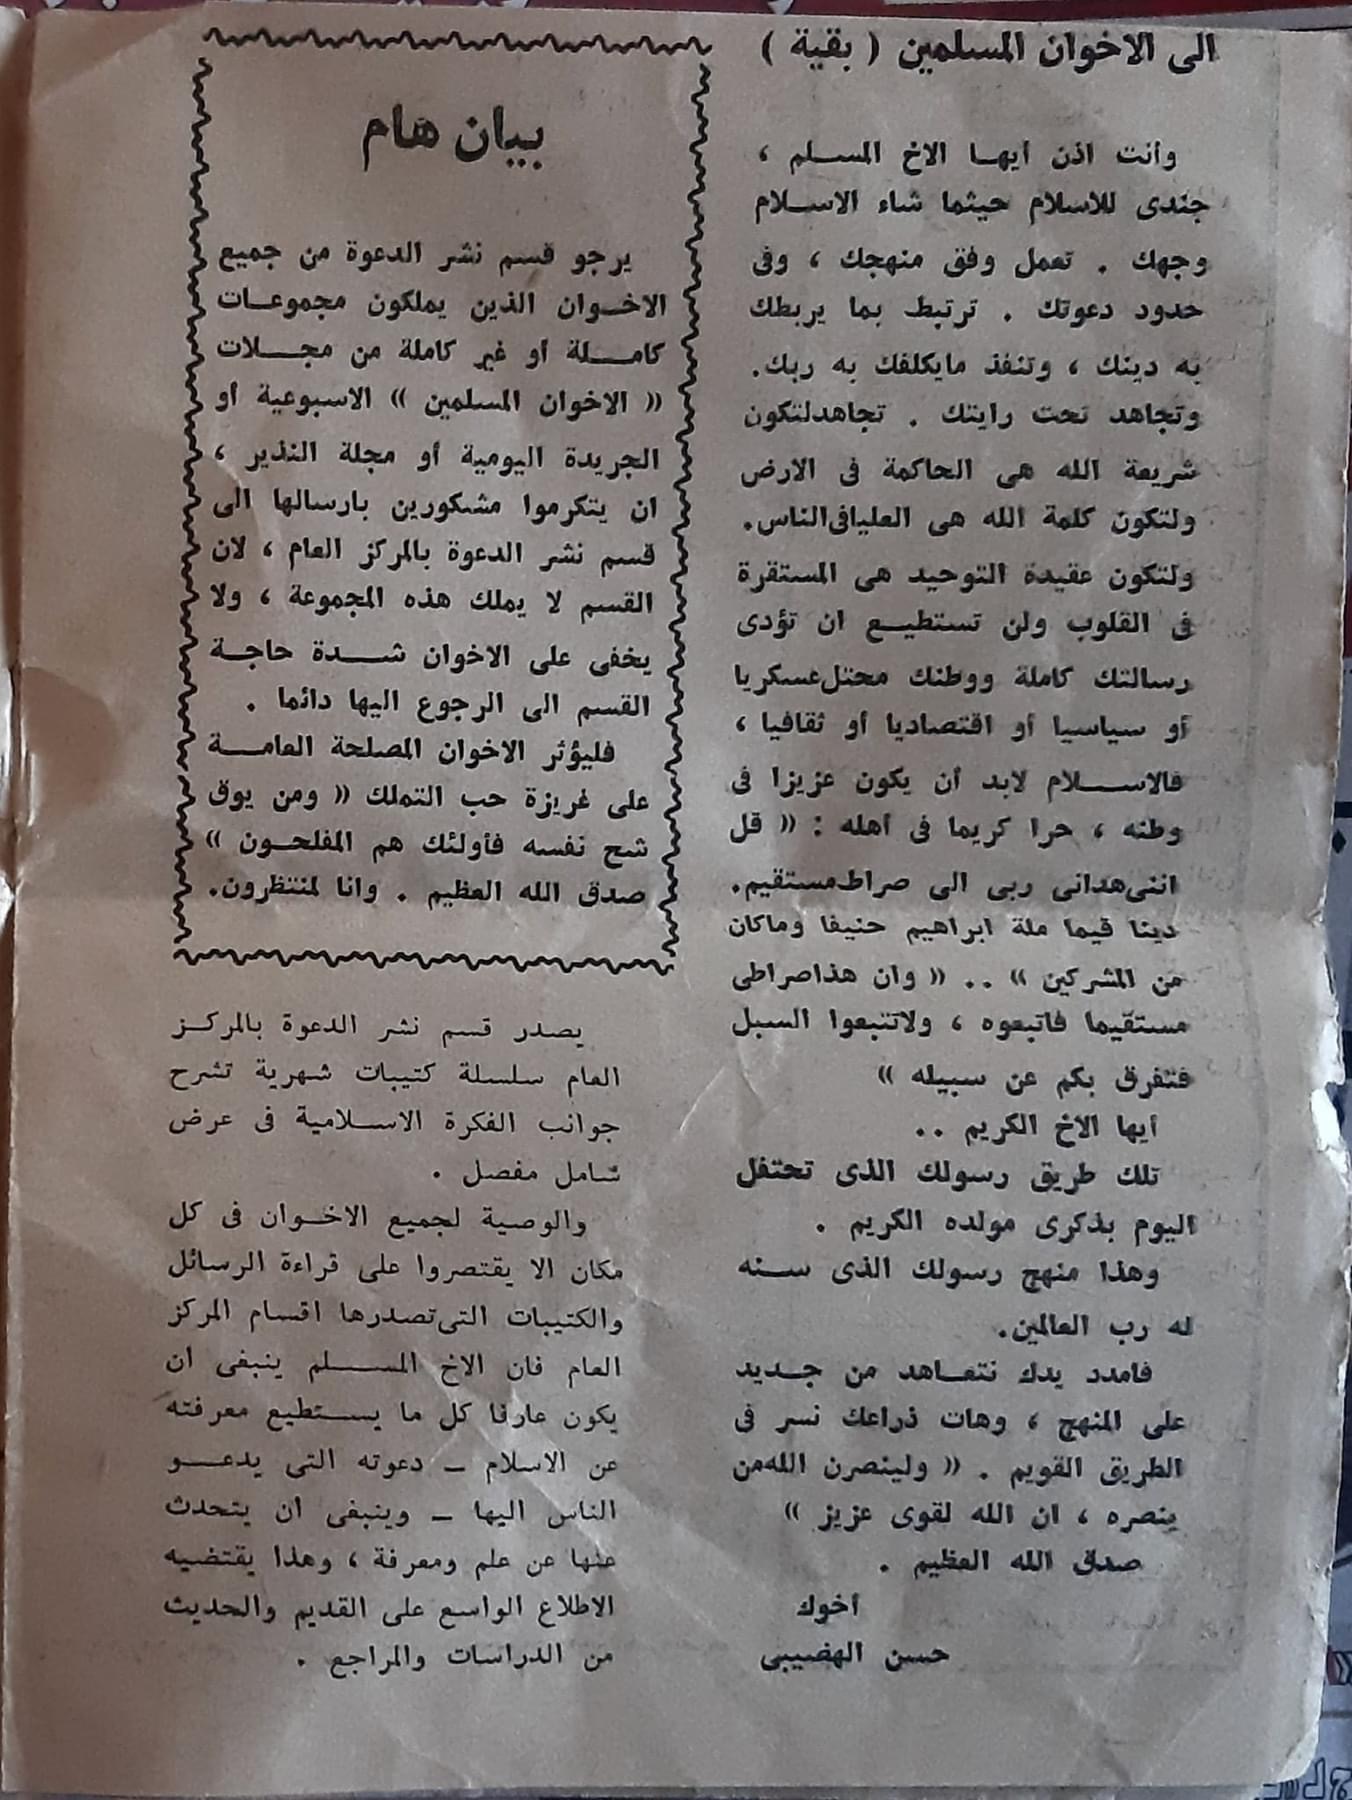 الى الاخوان المسلمين ( بقية )
وأنت اذن أيهــا الاخ المســلم ،
جندى للاسلام حيثما شاء الاســلام
وجهك . تعمل وفق منهجك ، وفى
حدود دعوتك . ترتبط بما يربطك
به دينك ، وتنفذ مايكلفك به ربك.
وتجاهد تحت رايتك . تجاهدلتكون
شريعة الله هى الحاكمة فى الارض
ولتكون كلمة الله هى العليافى الناس.
ولتكون عقيدة التوحيد هى المستقرة
فى القلوب ولن تستطيــع ان تؤدى
رسالتك كاملة ووطنك محتل عسكريا
أو سياسيا أو اقتصاديا أو ثقافيا ،
فالاســـلام لابد أن يكون عزيزا فى
وطنه ، حرا كريما فى أهله : « قل
اننى هدانى ربى الى صراط مستقيم.
دينا قيما ملة ابراهيم حنيفا وماكان
من المشركين » .. « وان هذاصراطى
مستقيما فاتبعوه ، ولاتتبعوا السبل
فتفرق بكم عن سبيله »
أيها الاخ الكريم ..
تلك طريق رسولك الذى تحتفل
اليوم بذكرى مولده الكريم .
وهذا منهج رسولك الذى ســنه
له رب العالمين.
فامدد يدك نتعــاهد من جــديد
على المنهج ، وهات ذراعك نسر فى
الطريق القويم . « ولينصرن الله من
ينصره ، ان الله لقوى عزيز »
صدق الله العظيم .
أخوك
حسن الهضيبى
بيان هام
يرجو قسم نشر الدعوة من جميع
الاخــوان الذين يملكون مجموعــات
كامــلة أو غير كاملة من مجــلات
« الاخوان المسلمين » الاسبوعية أو
الجريدة اليومية أو مجلة النذير ،
ان يتكرموا مشكورين بارسالها الى
قسم نشر الدعوة بالمركز العام ، لان
القسم لا يملك هذه المجموعة ، ولا
يخفى على الاخوان شــدة حاجــة
القسم الى الرجوع اليها دائما .
فليؤثر الاخوان المصلحة العامــة
على غريزة حب التملك « ومن يوق
شح نفسه فأولئك هم المفلحــون »
صدق الله العظيم . وانا لمنتظرون.
يصدر قسم نشر الدعوة بالمركــز
العام سلسلة كتيبات شهرية تشرح
جوانب الفكرة الاســلامية فى عرض
شامل مفصل .
والوصية لجميع الاخــوان فى كل
مكان الا يقتصروا على قراءة الرسائل
والكتيبات التى تصدرها اقسام المركز
العام فان الاخ المســلم ينبغى ان
يكون عارفا كل ما يســتطيع معرفته
عن الاسلام ــ دعوته التى يدعــو
الناس اليها ــ وينبغى ان يتحدث
عنها عن علم ومعرفة ، وهذا يقتضيه
الاطلاع الواسع على القديم والحديث
من الدراسات والمراجع .